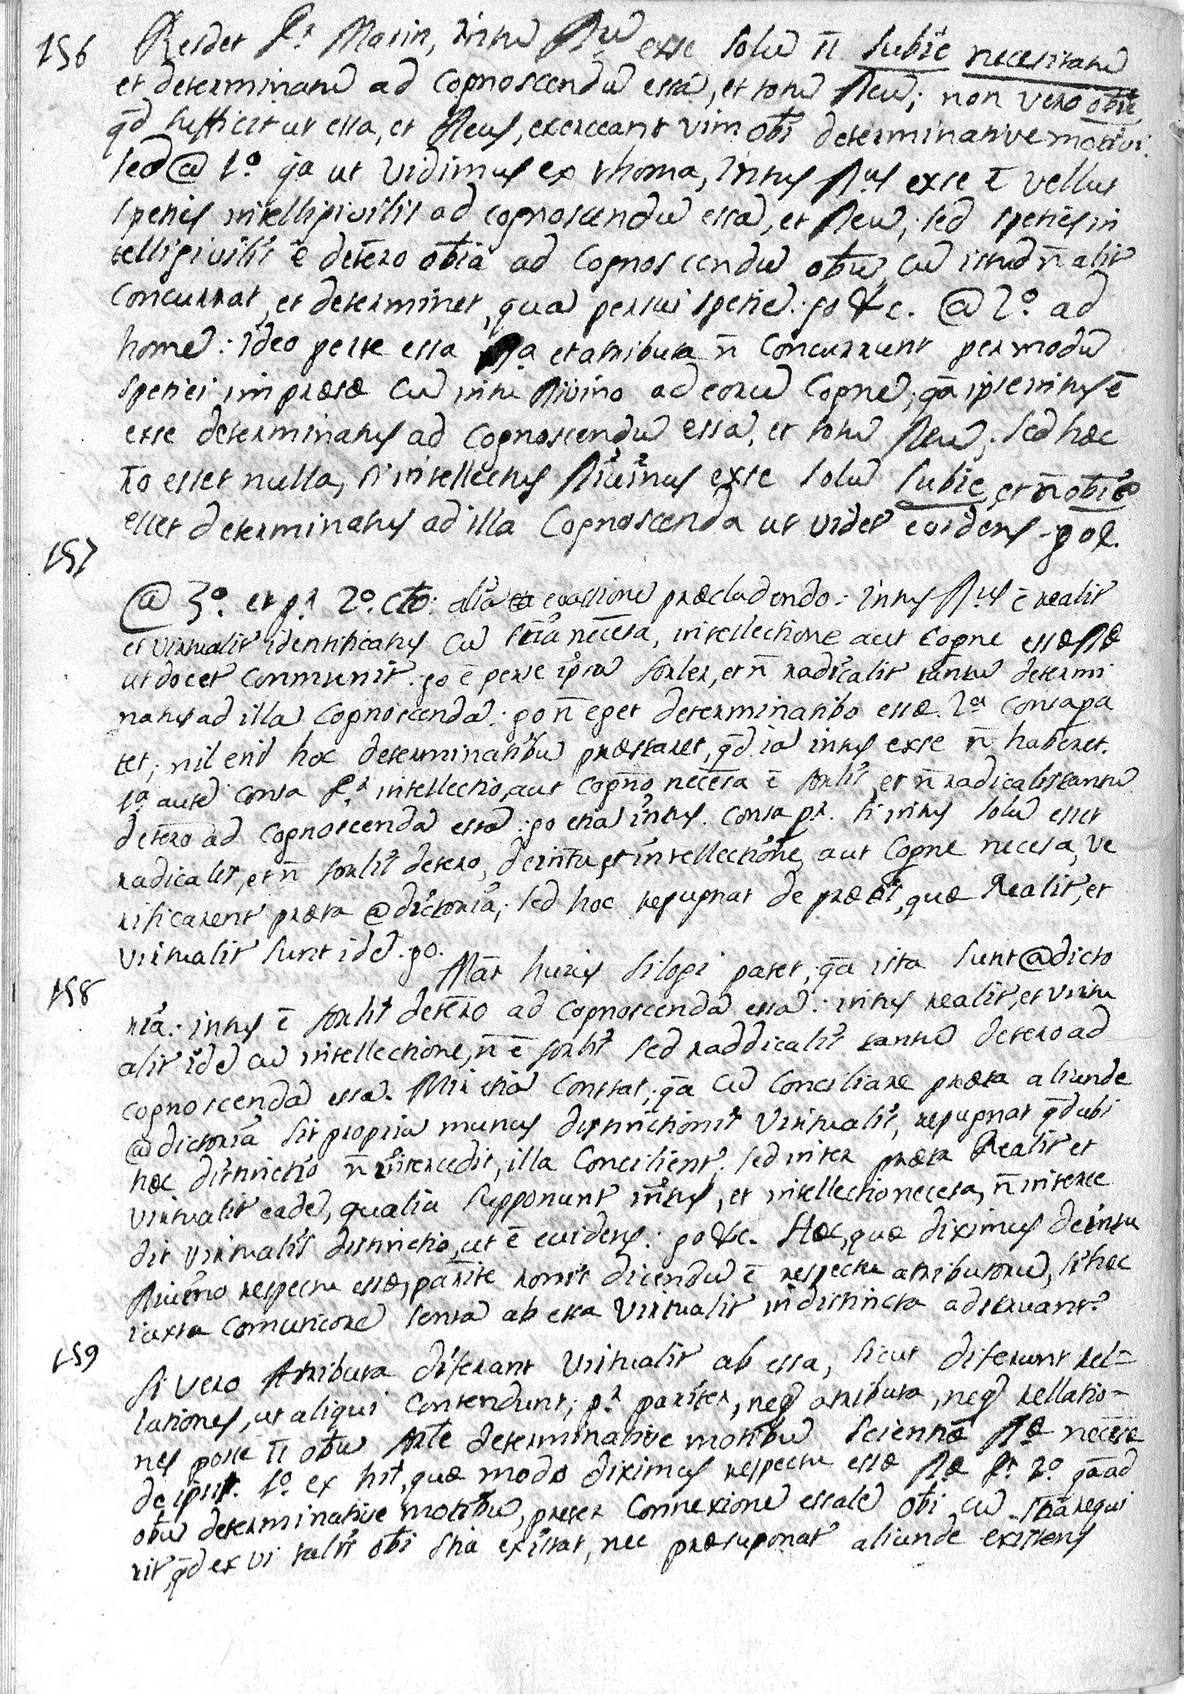 156 Resdet Pr. Marin, intũ Dũ ex se solũ n̄ subie necesitatũ
et determinatũ ad cognoscendũ essã, et totũ Deũ; non vero obie
qd sufficit ut essa, et Deus, exerceant vim obti determinative motivi.
sed @ 1º qa ut vidimus ex thoma, intus Dus ex se ē vellut
speties intelligivilis ad cognoscendũ essã, et Deũ; sed speties in
telligivilis ē detero obia ad cognoscendũ obũ, cũ istud n̄ alit
concurrat, et determinet, quã per sui spetiẽ: go &c. @ 2º ad
homẽ: ideo per se essa Da et atributa n̄ concurrunt per modũ
spetiei impræsæ cũ intũ Divino ad eorũ cogne; qã ipse intus ē
ex se determinatus ad cognoscendũ essã, et totũ Deũ; sed hæc
ro esset nulla, si intellectus Divinus ex se solũ subie, et n̄ obie
esset determinatus ad illã cognoscendã ut videt evidens. go &.
157 @ 3º et pr. 2º cto: aliã evasione præcludendo: intus Dus ē realit
et virtualit identificatus cũ sciã necesa, intellectione aut cogne essæ Dæ
ut docet communit: go ē per se ipsũ forler, et n̄ radicalit tantũ determi
natus ad illã cognoscendã: go n̄ eget determinatibo essæ. 2a consa pa
tet; nil enĩ hoc determinatibũ præstaret, qd iã intus ex se n̄ haberet.
1a autẽ consa pr. intellectio, aut cogno, necesa ē forlit, et n̄ radicalit tantũ
detero ad cognoscendã essã: go etiã intus. consa pr. si intus solũ esset
radicalit, et n̄ forlit detero, de intu, et intellectione, aut cogne necesa, ve
rificarent præta @dictoria; sed hoc repugnat de præti, quæ realit, et
virtualit sunt idẽ. go.
158 Mār huius silogi patet, qã ista sunt @dicto
ria: intus ē forlit detero ad cognoscendã essã: intus realit, et virtu
alit idẽ cũ intellectione, n̄ ē forlit sed raddicalit tantũ detero ad
cognoscendã essã. Mir etiã constat; qã cũ conciliare præta aliunde
@dictoria sit propriũ munus distinctionis virtualis, repugnat qd ubi
hæc distinctio n̄ intercedit, illa concilient. sed inter præta realit et
virtualit eadẽ, qualia supponunt intus, et intellectio necesa, n̄ interce
dit virtualis distinctio, ut ē evidens: go &c. Hæc, quæ diximus de intu
Divino respectu essæ, parite ronis dicendũ ē respectu atributorũ, si hæc
iuxta comuniorẽ sentã ab essa virtualit indistincta adstruant.
159 Si vero atributa diferant virtualit ab essa, sicut diferunt rel=
lationes, ut aliqui contendunt; pr. pariter, neq atributa, neq rellatio-
nes posse n̄ obũ forte determinative motibũ scientiæ Dæ necesæ
de ipsis. 1º ex hit, quæ modo diximus respectu essæ Dæ pr. 2º qã ad
obũ determinative motibũ, preter connexionẽ essalẽ obi cũ sciã requi
rit, qd ex vi talis obi scia existat, nec præsuponat aliunde existens